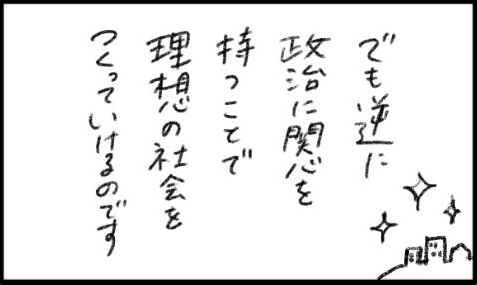 でも逆に
政治に関心を
持つことで
理想の社会を
つくっていけるのです